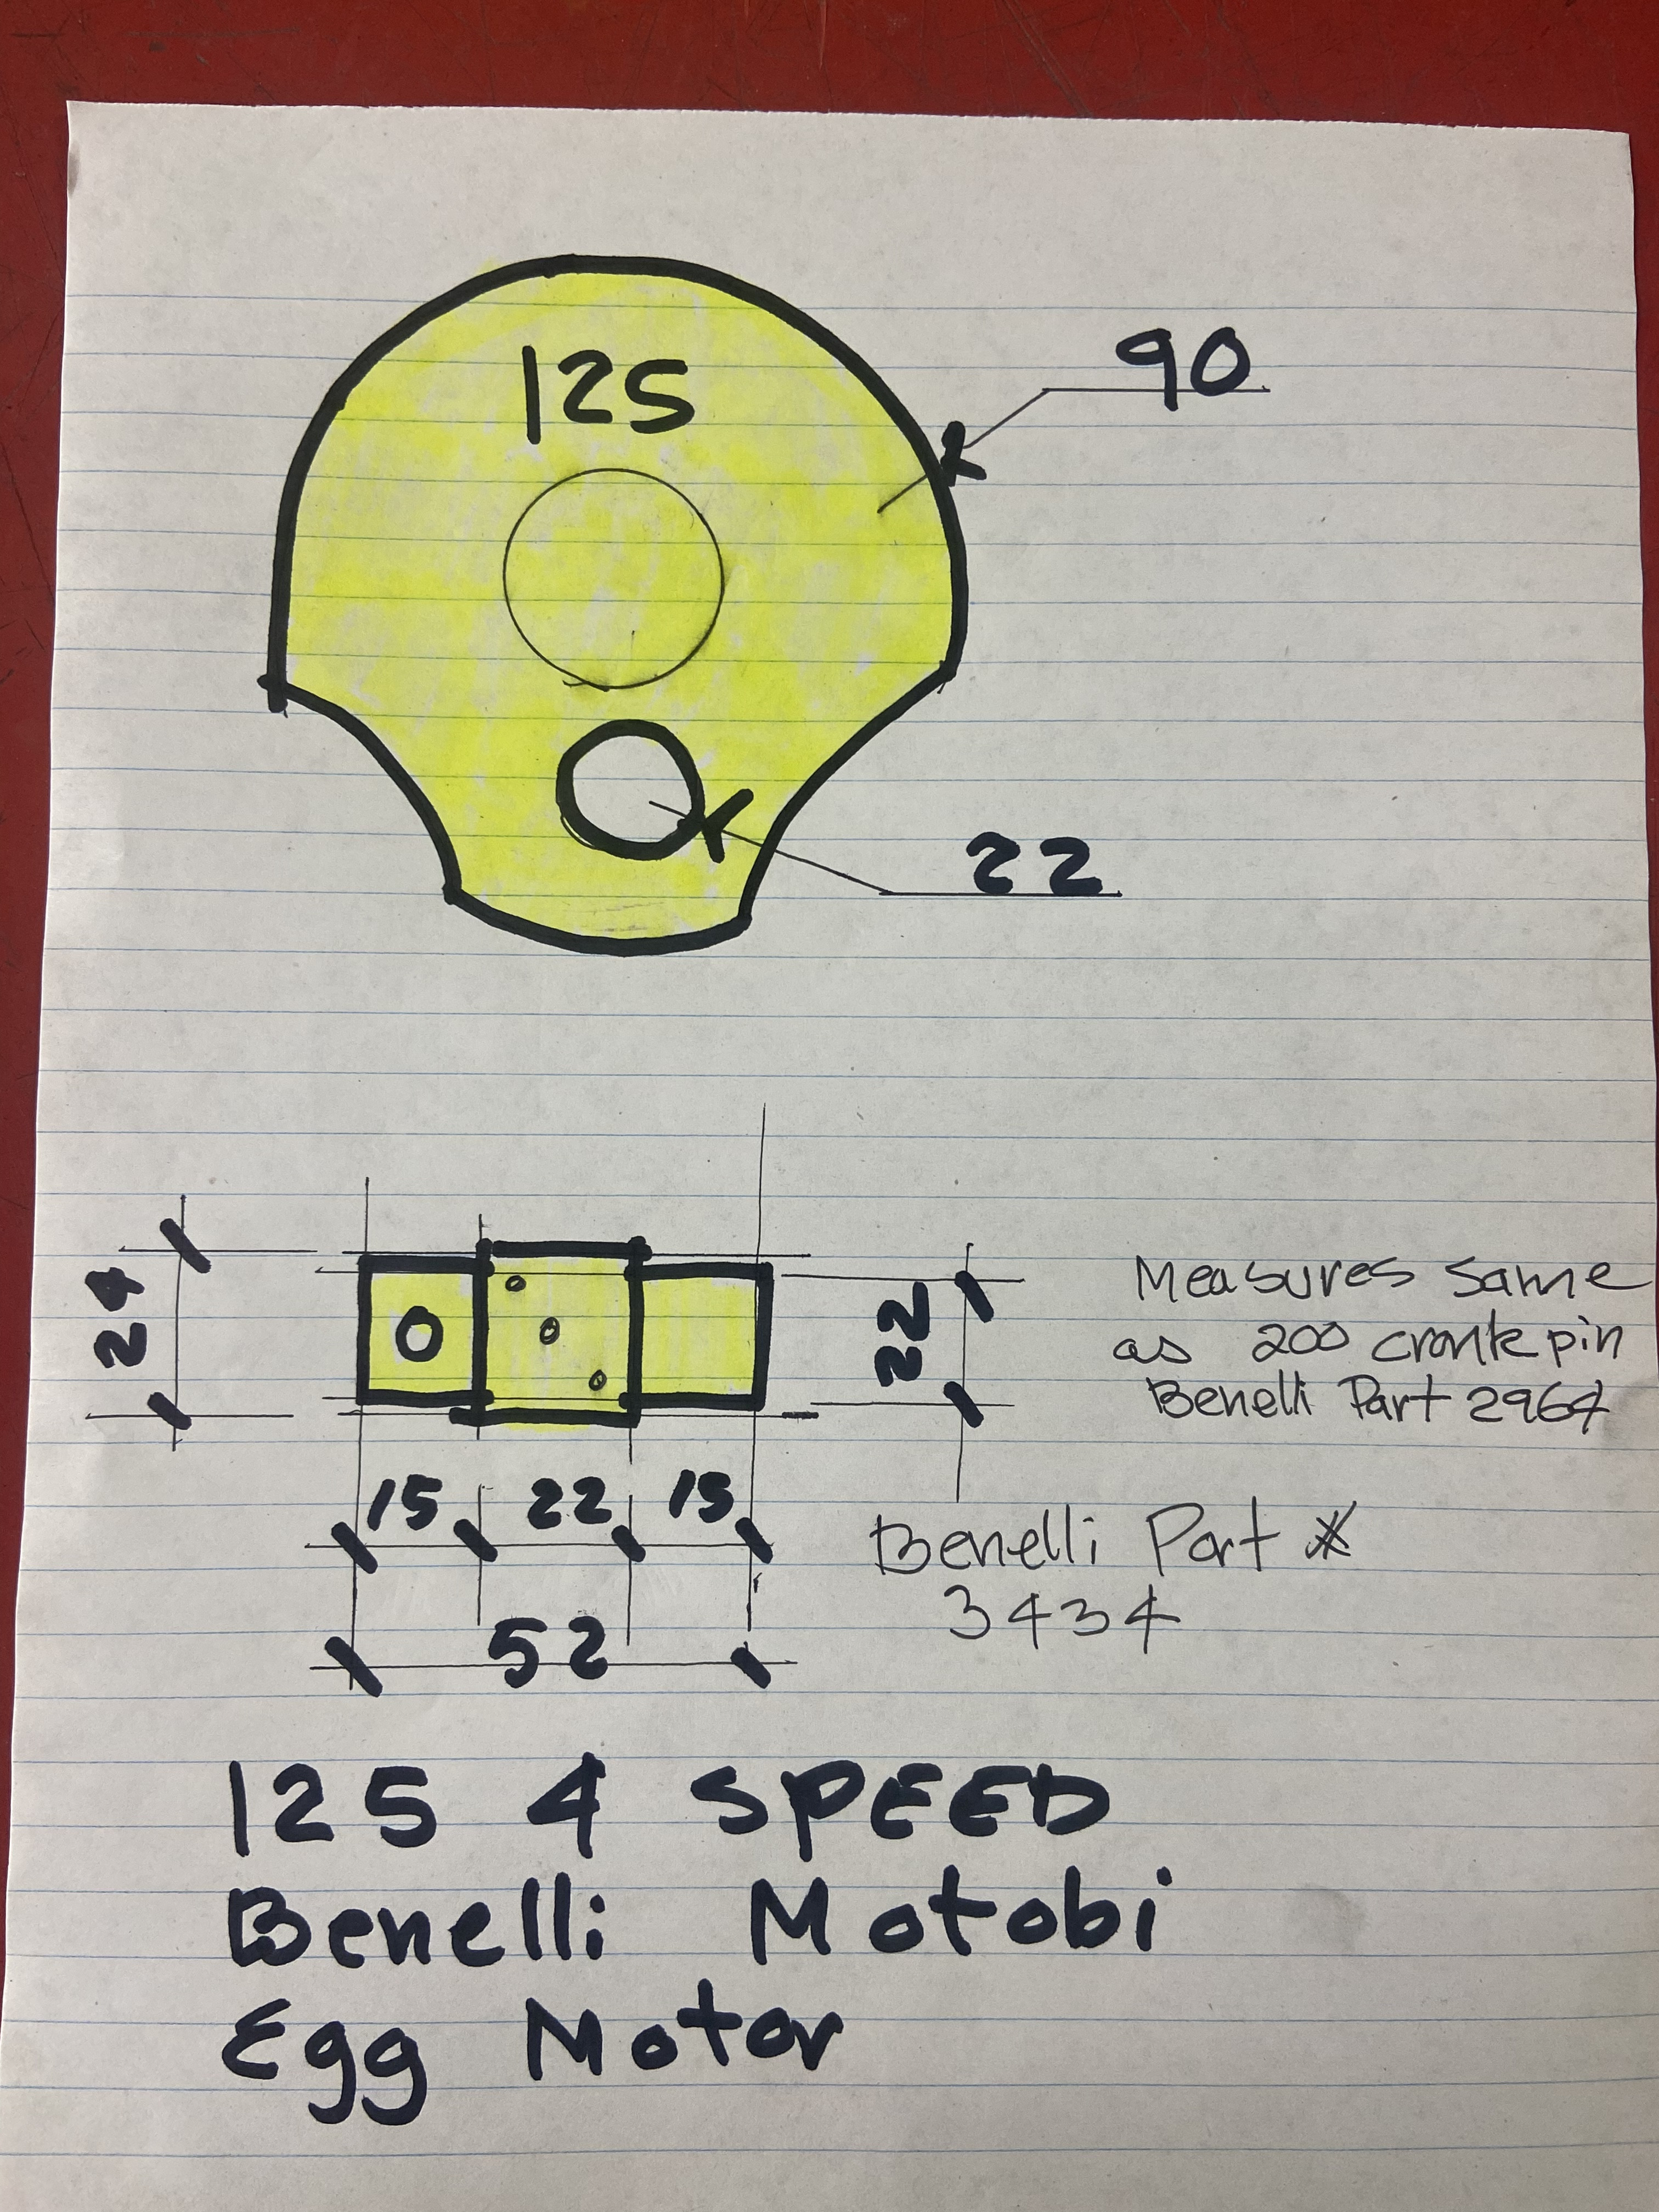 125
90
22
24
22
Measures same
as 200 crank pin
Benelli Part 2964
15 22 15
Benelli Part #
3434
52
125 4 SPEED
Benelli Motobi
Egg Motor